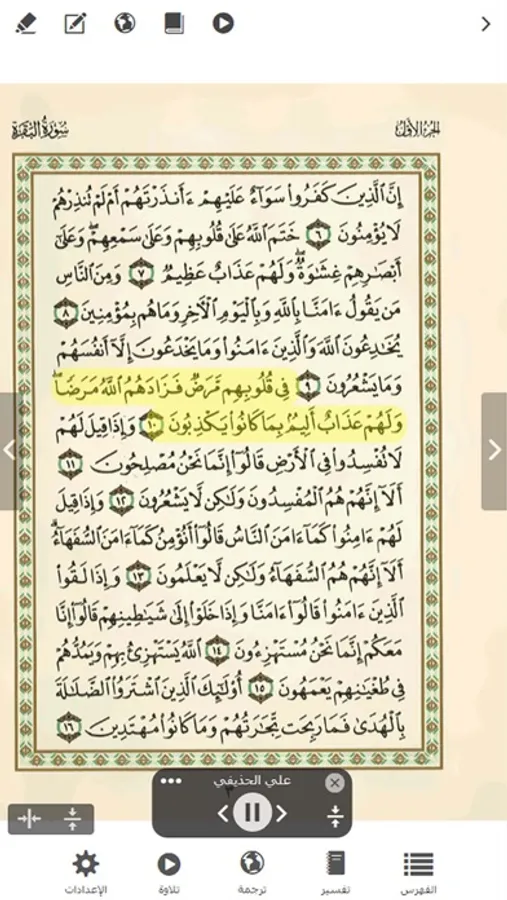 الجزء الأول
سورة البقرة
إِنَّ ٱلَّذِينَ كَفَرُوا۟ سَوَآءٌ عَلَيْهِمْ ءَأَنذَرْتَهُمْ أَمْ لَمْ تُنذِرْهُمْ
لَا يُؤْمِنُونَ ٦ خَتَمَ ٱللَّهُ عَلَىٰ قُلُوبِهِمْ وَعَلَىٰ سَمْعِهِمْ ۖ وَعَلَىٰٓ
أَبْصَـٰرِهِمْ غِشَـٰوَةٌ ۖ وَلَهُمْ عَذَابٌ عَظِيمٌ ٧ وَمِنَ ٱلنَّاسِ
مَن يَقُولُ ءَامَنَّا بِٱللَّهِ وَبِٱلْيَوْمِ ٱلْـَٔاخِرِ وَمَا هُم بِمُؤْمِنِينَ ٨
يُخَـٰدِعُونَ ٱللَّهَ وَٱلَّذِينَ ءَامَنُوا۟ وَمَا يَخْدَعُونَ إِلَّآ أَنفُسَهُمْ
وَمَا يَشْعُرُونَ ٩ فِى قُلُوبِهِم مَّرَضٌ فَزَادَهُمُ ٱللَّهُ مَرَضًا ۖ
وَلَهُمْ عَذَابٌ أَلِيمٌۢ بِمَا كَانُوا۟ يَكْذِبُونَ ١٠ وَإِذَا قِيلَ لَهُمْ
لَا تُفْسِدُوا۟ فِى ٱلْأَرْضِ قَالُوٓا۟ إِنَّمَا نَحْنُ مُصْلِحُونَ ١١
أَلَآ إِنَّهُمْ هُمُ ٱلْمُفْسِدُونَ وَلَـٰكِن لَّا يَشْعُرُونَ ١٢ وَإِذَا قِيلَ
لَهُمْ ءَامِنُوا۟ كَمَآ ءَامَنَ ٱلنَّاسُ قَالُوٓا۟ أَنُؤْمِنُ كَمَآ ءَامَنَ ٱلسُّفَهَآءُ ۗ
أَلَآ إِنَّهُمْ هُمُ ٱلسُّفَهَآءُ وَلَـٰكِن لَّا يَعْلَمُونَ ١٣ وَإِذَا لَقُوا۟
ٱلَّذِينَ ءَامَنُوا۟ قَالُوٓا۟ ءَامَنَّا وَإِذَا خَلَوْا۟ إِلَىٰ شَيَـٰطِينِهِمْ قَالُوٓا۟ إِنَّا
مَعَكُمْ إِنَّمَا نَحْنُ مُسْتَهْزِءُونَ ١٤ ٱللَّهُ يَسْتَهْزِئُ بِهِمْ وَيَمُدُّهُمْ
فِى طُغْيَـٰنِهِمْ يَعْمَهُونَ ١٥ أُو۟لَـٰٓئِكَ ٱلَّذِينَ ٱشْتَرَوُا۟ ٱلضَّلَـٰلَةَ
بِٱلْهُدَىٰ فَمَا رَبِحَت تِّجَـٰرَتُهُمْ وَمَا كَانُوا۟ مُهْتَدِينَ ١٦
علي الحذيفي
الفهرس
تفسير
ترجمة
تلاوة
الإعدادات